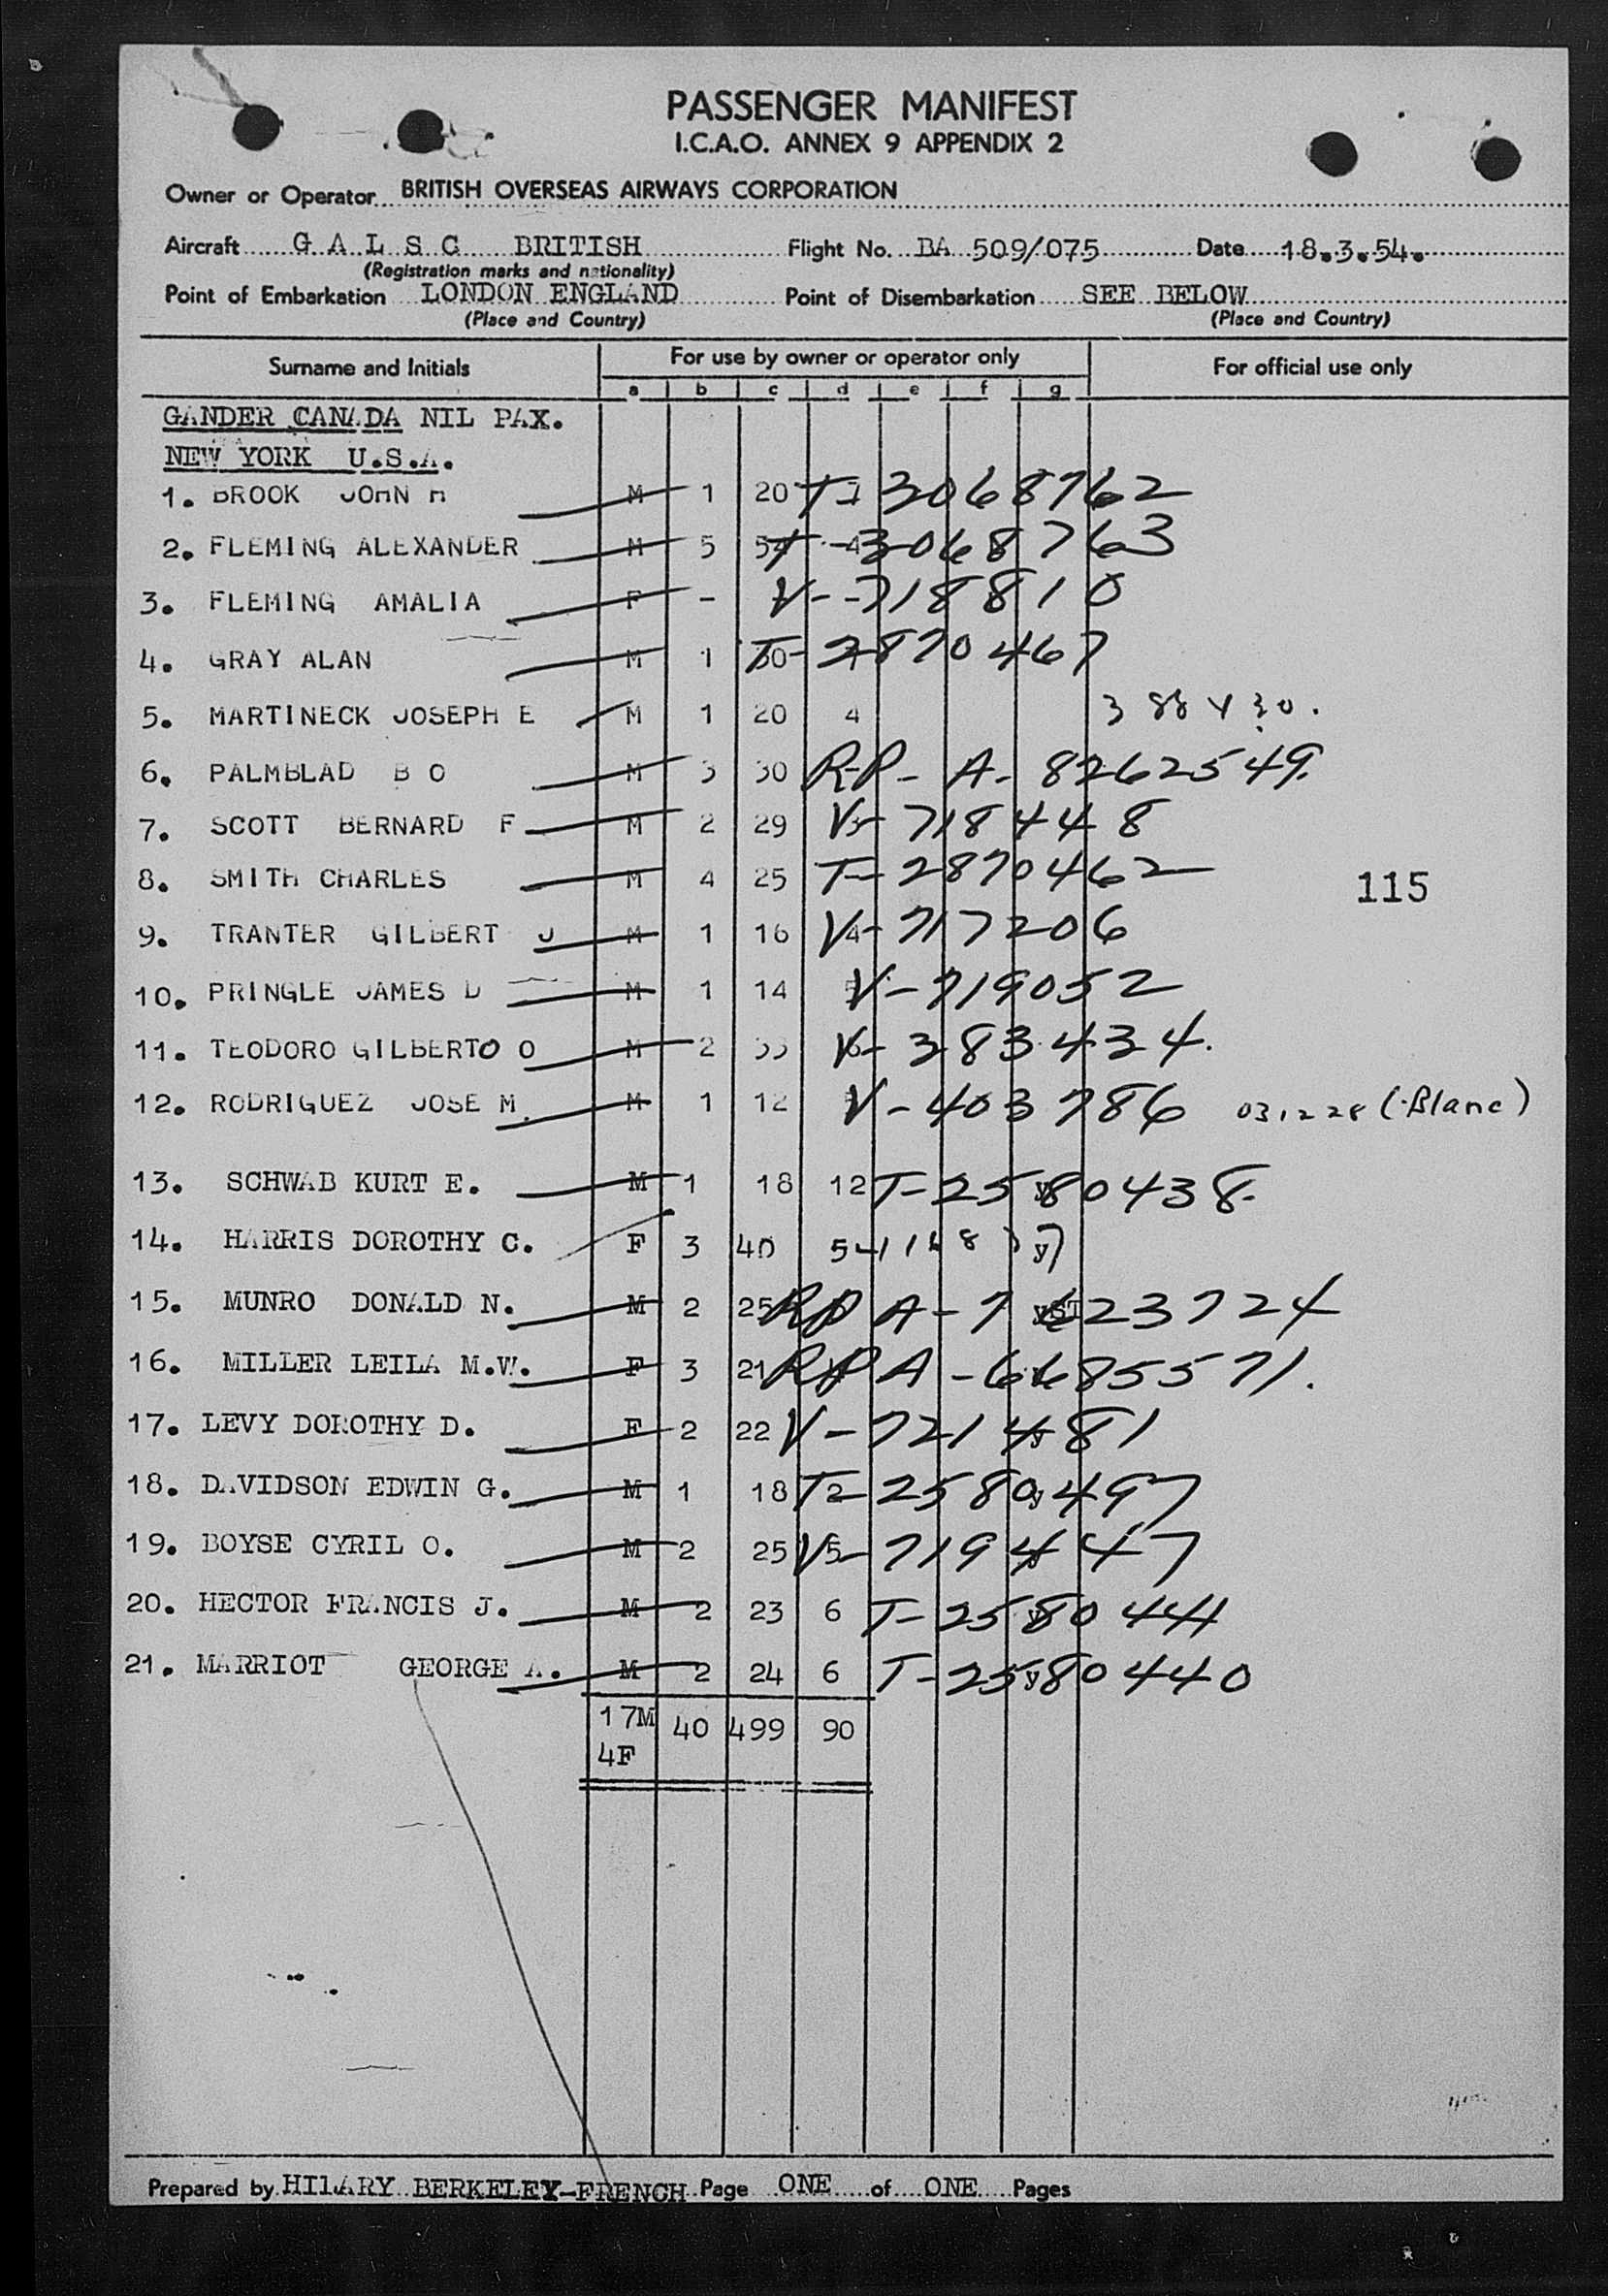 PASSENGER MANIFEST
I.C.A.O. ANNEX 9 APPENDIX 2
Owner or Operator BRITISH OVERSEAS AIRWAYS CORPORATION
Aircraft G A L S C BRITISH Flight No. BA 509/075 Date 18.3.54.
(Registration marks and nationality)
Point of Embarkation LONDON ENGLAND Point of Disembarkation SEE BELOW
(Place and Country) (Place and Country)
Surname and Initials For use by owner or operator only For official use only
a b c d e f g
GANDER CANADA NIL PAX.
NEW YORK U.S.A.
1. BROOK JOHN H M 1 20 T- 3068762
2. FLEMING ALEXANDER M 5 54 T-3068763
3. FLEMING AMALIA F - V-718810
4. GRAY ALAN M 1 30 T-2870467
5. MARTINECK JOSEPH E M 1 20 4
6. PALMBLAD B O M 3 30 RP- A- 8262549.
7. SCOTT BERNARD F M 2 29 V-718448
8. SMITH CHARLES M 4 25 T-2870462
115
9. TRANTER GILBERT J M 1 16 4 V-717206
10. PRINGLE JAMES D M 1 14 V-719052
11. TEODORO GILBERTO O M 2 33 6 V-383434.
12. RODRIGUEZ JOSE M. M 1 12 V-403786 031228 (Blanc)
13. SCHWAB KURT E. M 1 18 12 T-2580438. y
14. HARRIS DOROTHY C. F 3 40 5 y
15. MUNRO DONALD N. M 2 25 RP A-7623724
16. MILLER LEILA M.W. F 3 21 RP A-6685571.
17. LEVY DOROTHY D. F 2 22 V-721481
18. DAVIDSON EDWIN G. M 1 18 2 T-2580497 y
19. BOYSE CYRIL O. M 2 25 5 V-719447
20. HECTOR FRANCIS J. M 2 23 6 T-2580441 y
21. MARRIOT GEORGE A. M 2 24 6 T-2580440 y
17M 40 499 90
4F
Prepared by HIlARY BERKELEY-FRENCH Page ONE of ONE Pages